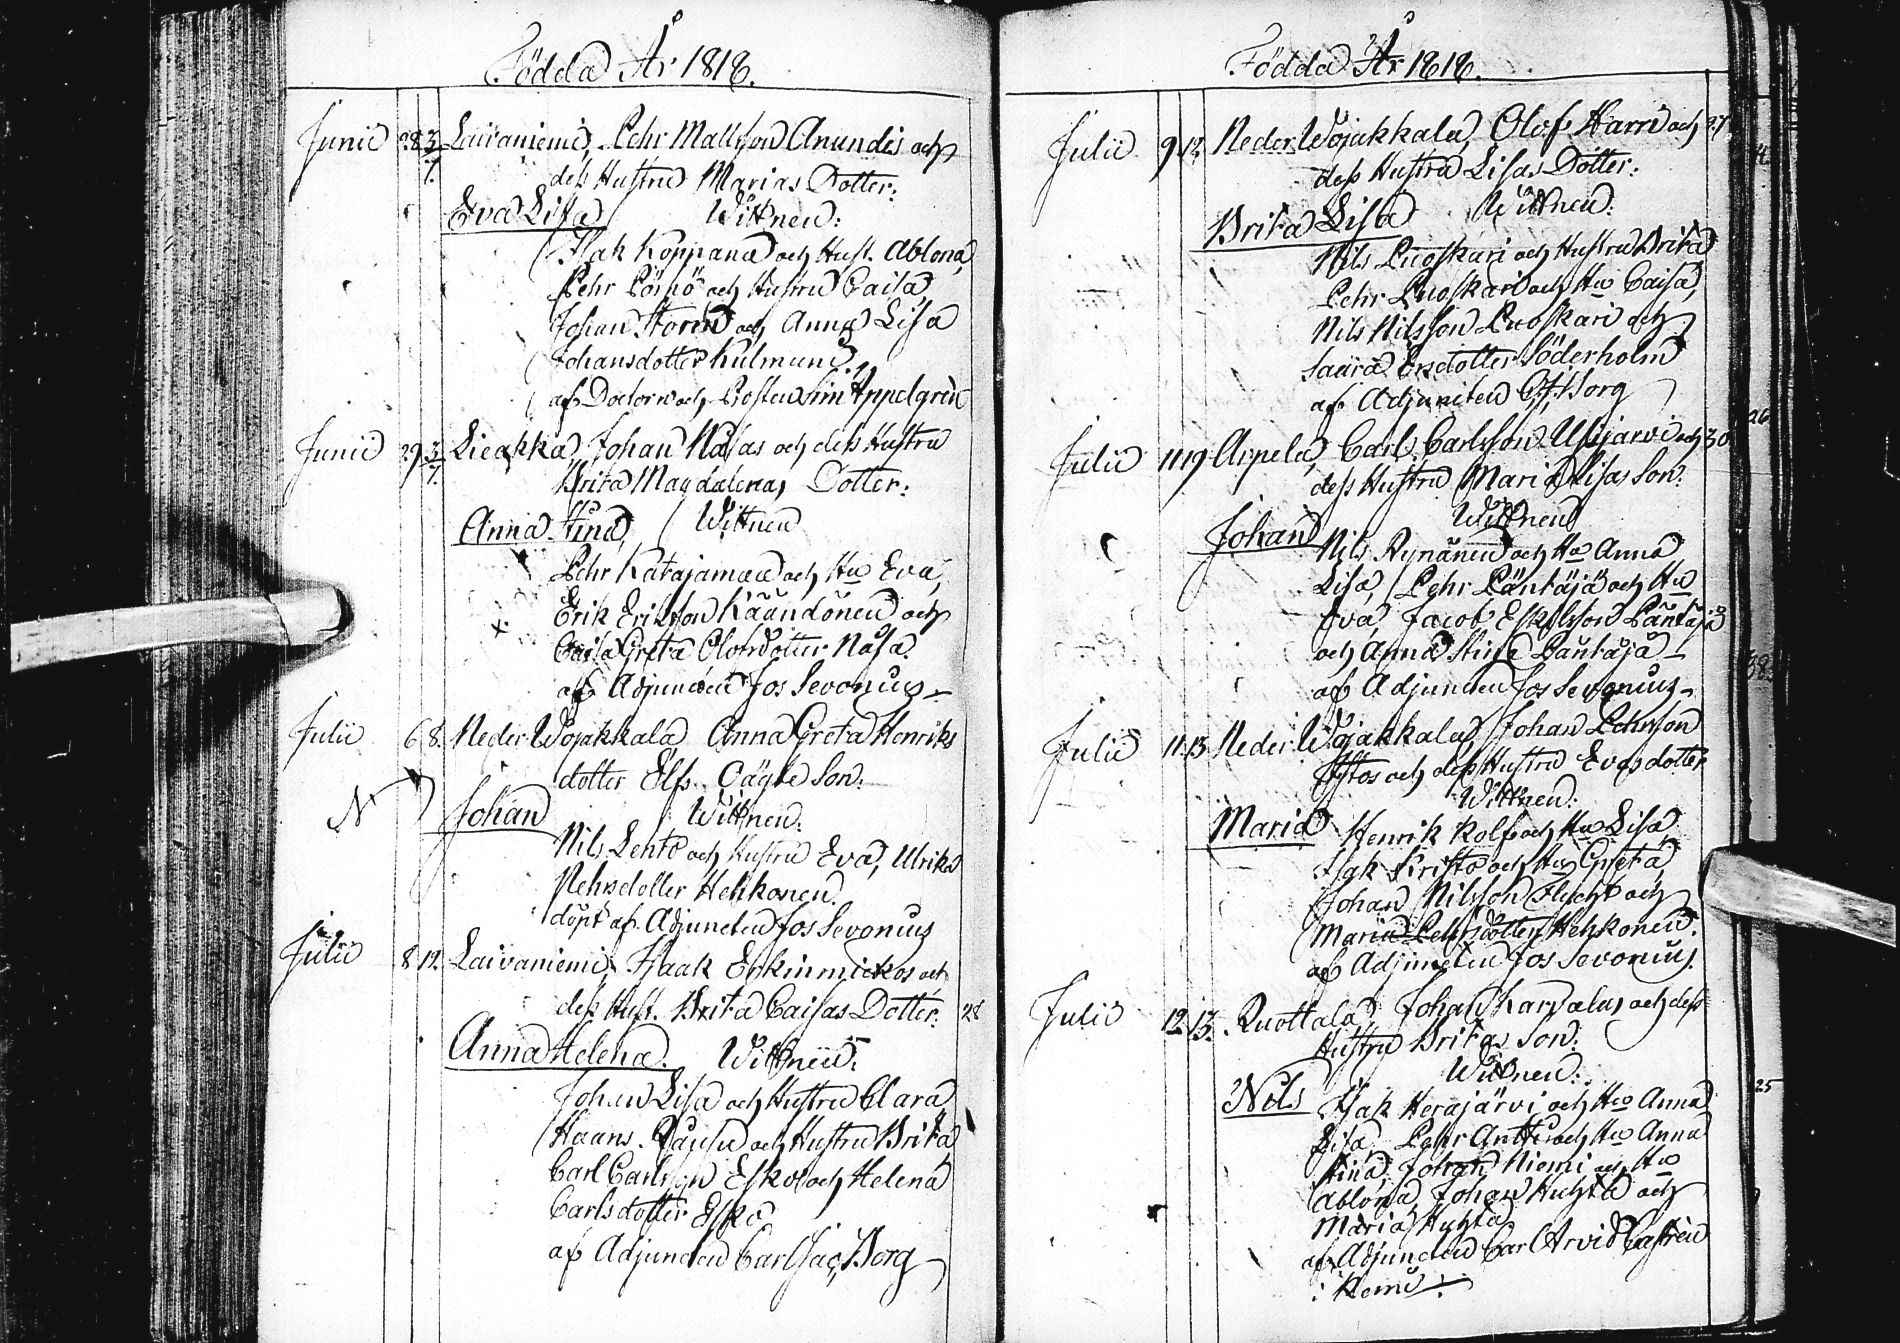 Födda År 1818.
Junii 28 3/7. Laivaniemi, Pehr Mattsson Anundis och
dess Hustru Marias Dotter:
Eva Lisa Wittnen:
Isak Koppana och Hust. Ablona,
Pehr Pörhö och Hustru Caisa
Johan Storm och Anna Lisa
Johansdotter Kulmuni,
af Doctorn och Prosten Sim Appelgren
Junii 29 3/7. Lieakka, Johan Nasas och dess Hustru
Brita Magdalenas Dotter:
Anna Stina, Wittnen
Pehr Katajamaa och Hu Eva,
Erik Eriksson Käändönen och
Caisa Greta Olofsdotter Nasa.
af Adjuncten Jos Sevonius
Julii 6 8. Neder Wojakkala Anna Greta Henriks
dotter Elfs Oägte Son.
N
Johan Wittnen:
Nils Lento och Hustru Eva, Ulrika
Pehrsdotter Hehkonen.
döpt af Adjuncten Jos Sevonius
Julii 8 12. Laivaniemi, Isaak Erkinmickos och
dess Hust. Brita Caisas Dotter: 28
Anna Helena. Wittnen:
Johan Lisa och Hustru Clara
Haans och Hustru Brita
Carl Carlsson Esko och Helena
Carlsdotter Esko
af Adjuncten Carl Jac Borg
Födda År 1818.
Julii 9 12. Neder Wojakkala, Olof Harri och 27
dess Hustru Lisas Dotter:
Brita Lisa Wittnen:
Nils Luoskari och Hustru Brita
Pehr Luoskari och Hu Caisa,
Nils Nilsson Luoskari och
Saara Ersdotter Söderholm
af Adjuncten C J Borg
26
Julii 11 19 Arpela, Carl Carlsson Ussjärvi och 30
dess Hustru Maria Lisas Son:
Wittnen
Johan Nils Rynänen och Hu Anna
Lisa, Pehr Läntäjä och Hu
Eva, Jacob Eskelsson Läntäjä
och Anna Stina Läntäjä
af Adjuncten Jos Sevonius
38
Julii 11. 13 Neder Wojakkala, Johan Pehrsson
och dess Hustru Evas dotter
Wittnen:
Maria Henrik Rolf och Hu Lisa,
Isak Kristo och Hu Greta,
Johan Nilsson Flycht och
Maria Pehrsdotter Hehkonen.
af Adjuncten Jos Sevonius.
Julii 12 13. Ruottala, Johan Karjalus och dess
Hustru Britas Son:
Wittnen:
25
Nils Isak Herajärvi och Hu Anna
Lisa, Pehr Antti och Hu Anna
Stina, Johan Niemi och Hu
Ablona, Johan Huhta och
Maria Huhta
af Adjuncten Carl Arvid Castren
i Kemi